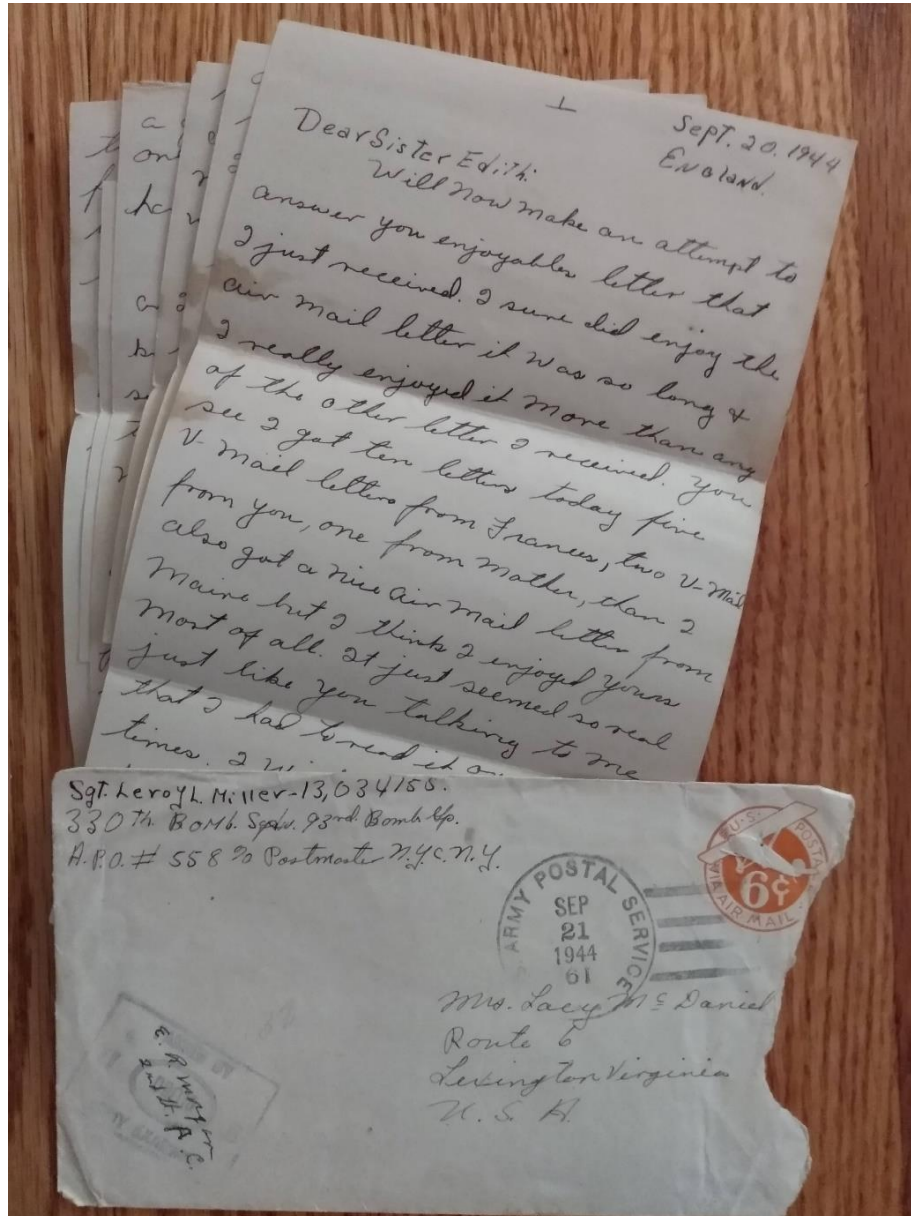 1
Sept. 20. 1944
England.
Dear Sister Edith:
Will now make an attempt to
answer you enjoyables letter that
I just received. I sure did enjoy the
air mail letter it was so long &
I really enjoyed it more than any
of the other letter I received. You
see I got ten letters today five
V-Mail letters from Frances, two V-Mail
from you, one from Mother, than I
also got a nice air mail letter from
Maine but I think I enjoyed yours
most of all. It just seemed so real
just like you talking to me
that I had to read it
times. I
Sgt. Leroy L. Miller-13,034155.
330th Bomb. Sqdn. 93rd. Bomb. Gp.
A.P.O. # 558 % Postmaster N.Y.C. N.Y.
U.S. POSTAGE
VIA AIR MAIL
6¢
ARMY POSTAL SERVICE
SEP
21
1944
61
Mrs. Lacy McDaniel
Route 6
Lexington Virginia
U. S. A.
E. R.
2nd Lt. A. C.